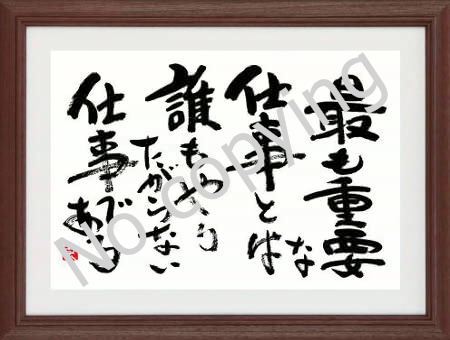 最も重要な
仕事とは
誰もやり
たがらない
仕事である
No copying